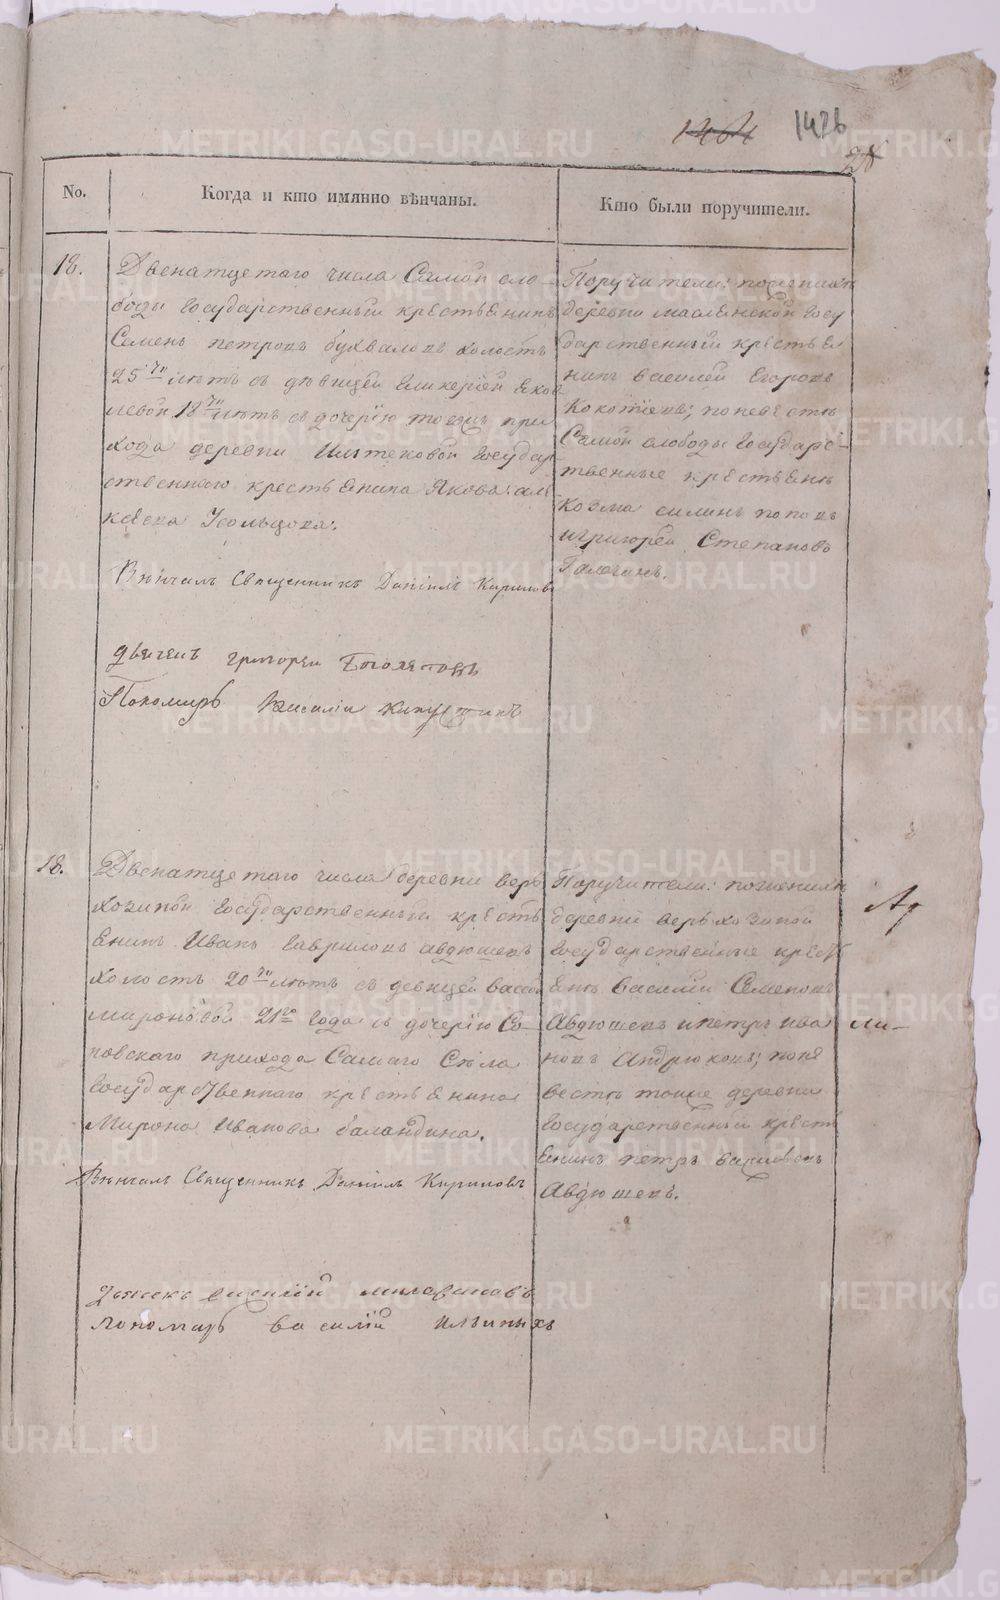 1426
No.
Когда и кто имянно вѣнчаны.
Кто были поручители.
18.
Двенатцетаго числа Самой сло-
боды Государственный крестьенинъ
Семенъ петровъ бухваловъ холостъ
25ти лѣтъ съ дѣвицей Гликерией Яков
левой 18ти лѣтъ съ дочерїю тоежъ при
хода деревни Государ
ственнаго крестьенина Якова алек
кѣева Усольцова.
Вѣнчалъ Священникъ Данїилъ Кириловъ
дьячекъ григореи Боголеповъ
Пономарь Василіи Капустинъ
Поручители: пожених
деревни маслянской Госу
дарственный крестье
нинъ василей Егоровъ
Кокотѣевъ; поневестѣ
Самой слободы Государс-
твенные крестьенѣ
козма силинъ поповъ
игригорей Степановъ
18.
Двенатцетаго числа деревни верх
хозиной Государственный кресть
енинъ Иванъ Гавриловъ авдюшевъ
холостъ 20ти лѣтъ съ девицей васой
мироновой 21го Года съ дочерїю Со-
повскаго прихода Самаго Села
Государственнаго крестьенина
Мирона Иванова баландина.
Вѣнчалъ Священникъ Данїилъ Кириловъ
дьячекъ василїй
пономарь василїй ильиныхъ
Поручители: пожениху
деревни верьхозиной
Государственные кресть
ене василий Семеновъ
Авдюшевъ ипетръ ива
новъ Андрюковъ; поне
вестѣ тоиже деревни
Государственный кресть
енинъ петръ василевъ
Авдюшевъ.
METRIKI.GASO-URAL.RU